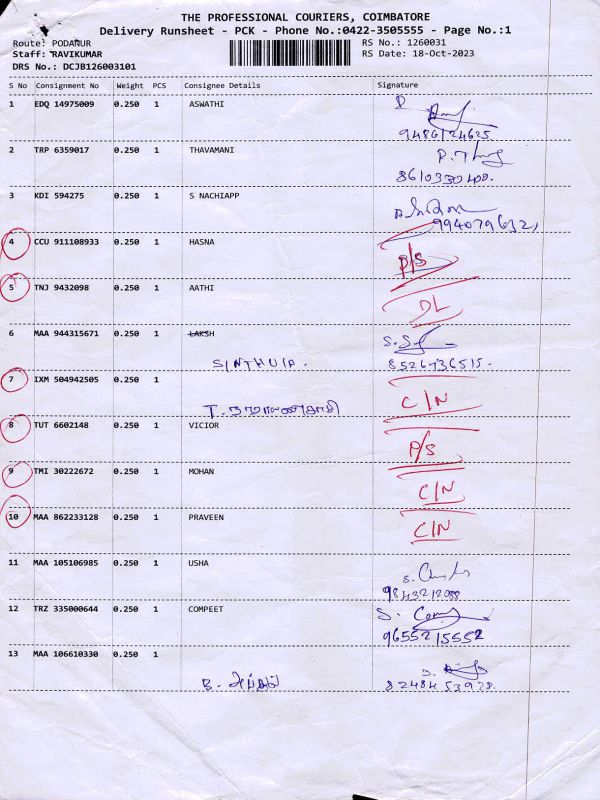 THE PROFESSIONAL COURIERS, COIMBATORE
Delivery Runsheet - PCK - Phone No.:0422-3505555 - Page No.:1
Route: PODANUR RS No.: 1260031
Staff: RAVIKUMAR RS Date: 18-Oct-2023
DRS No.: DCJB126003101
S No Consignment No Weight PCS Consignee Details Signature
1 EDQ 14975009 0.250 1 ASWATHI
9486124625
2 TRP 6359017 0.250 1 THAVAMANI
8610330400.
3 KDI 594275 0.250 1 S NACHIAPP
994079632,
4 CCU 911108933 0.250 1 HASNA P/S
5 TNJ 9432098 0.250 1 AATHI DL
6 MAA 944315671 0.250 1 LAKSH
SINTHUJA. 8526736515.
7 IXM 504942505 0.250 1 C/N
T.
8 TUT 6602148 0.250 1 VICIOR P/S
9 TMI 30222672 0.250 1 MOHAN C/N
10 MAA 862233128 0.250 1 PRAVEEN C/N
11 MAA 105106985 0.250 1 USHA
9843212088
12 TRZ 335000644 0.250 1 COMPEET
9655215552
13 MAA 106610330 0.250 1
B. 8248453928.